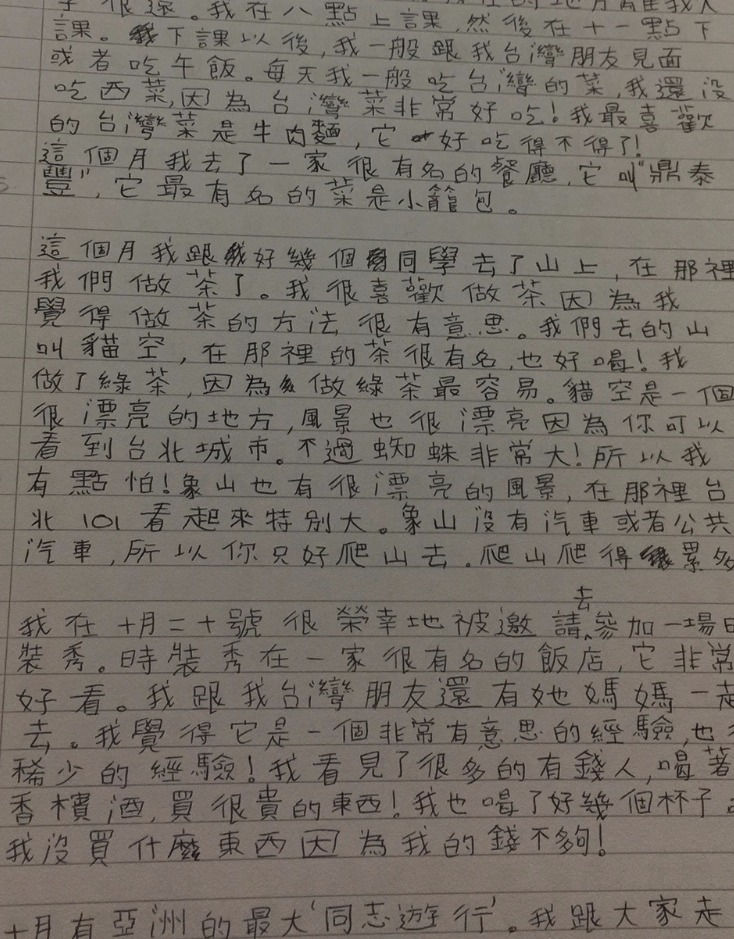 很遠。我在八點上課,然後在十一點下
課。下課以後,我一般跟我台灣朋友見面
或者吃午飯。每天我一般吃台灣的菜,我還沒
吃西菜,因為台灣菜非常好吃!我最喜歡
的台灣菜是牛肉麵,它好吃得不得了!
這個月我去了一家很有名的餐廳,它叫"鼎泰
豐",它最有名的菜是小籠包。
這個月我跟好幾個同學去了山上,在那裡
我們做茶了。我很喜歡做茶因為我
覺得做茶的方法很有意思。我們去的山
叫貓空,在那裡的茶很有名,也好喝!我
做了綠茶,因為做綠茶最容易。貓空是一個
很漂亮的地方,風景也很漂亮因為你可以
看到台北城市。不過蜘蛛非常大!所以我
有點怕!象山也有很漂亮的風景,在那裡台
北101看起來特別大。象山沒有汽車或者公共
汽車,所以你只好爬山去。爬山爬得累多
我在十月二十號很榮幸地被邀請去參加一場
裝秀。時裝秀在一家很有名的飯店,它非常
好看。我跟我台灣朋友還有她媽媽一起
去。我覺得它是一個非常有意思的經驗,也
稀少的經驗!我看見了很多的有錢人,喝著
香檳酒,買很貴的東西!我也喝了好幾個杯子
我沒買什麼東西因為我的錢不夠!
十月有亞洲的最大'同志遊行'。我跟大家走